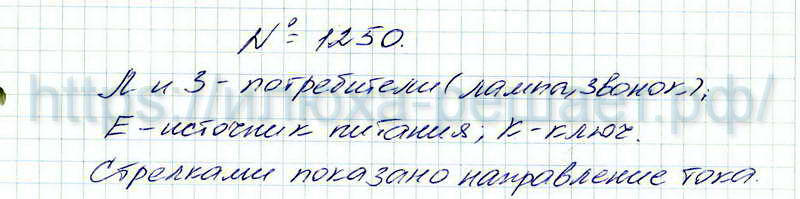 № = 1250.
Л и З - потребители (лампы, звонок);
Е - источник питания; К - ключ.
Стрелками показано направление тока.